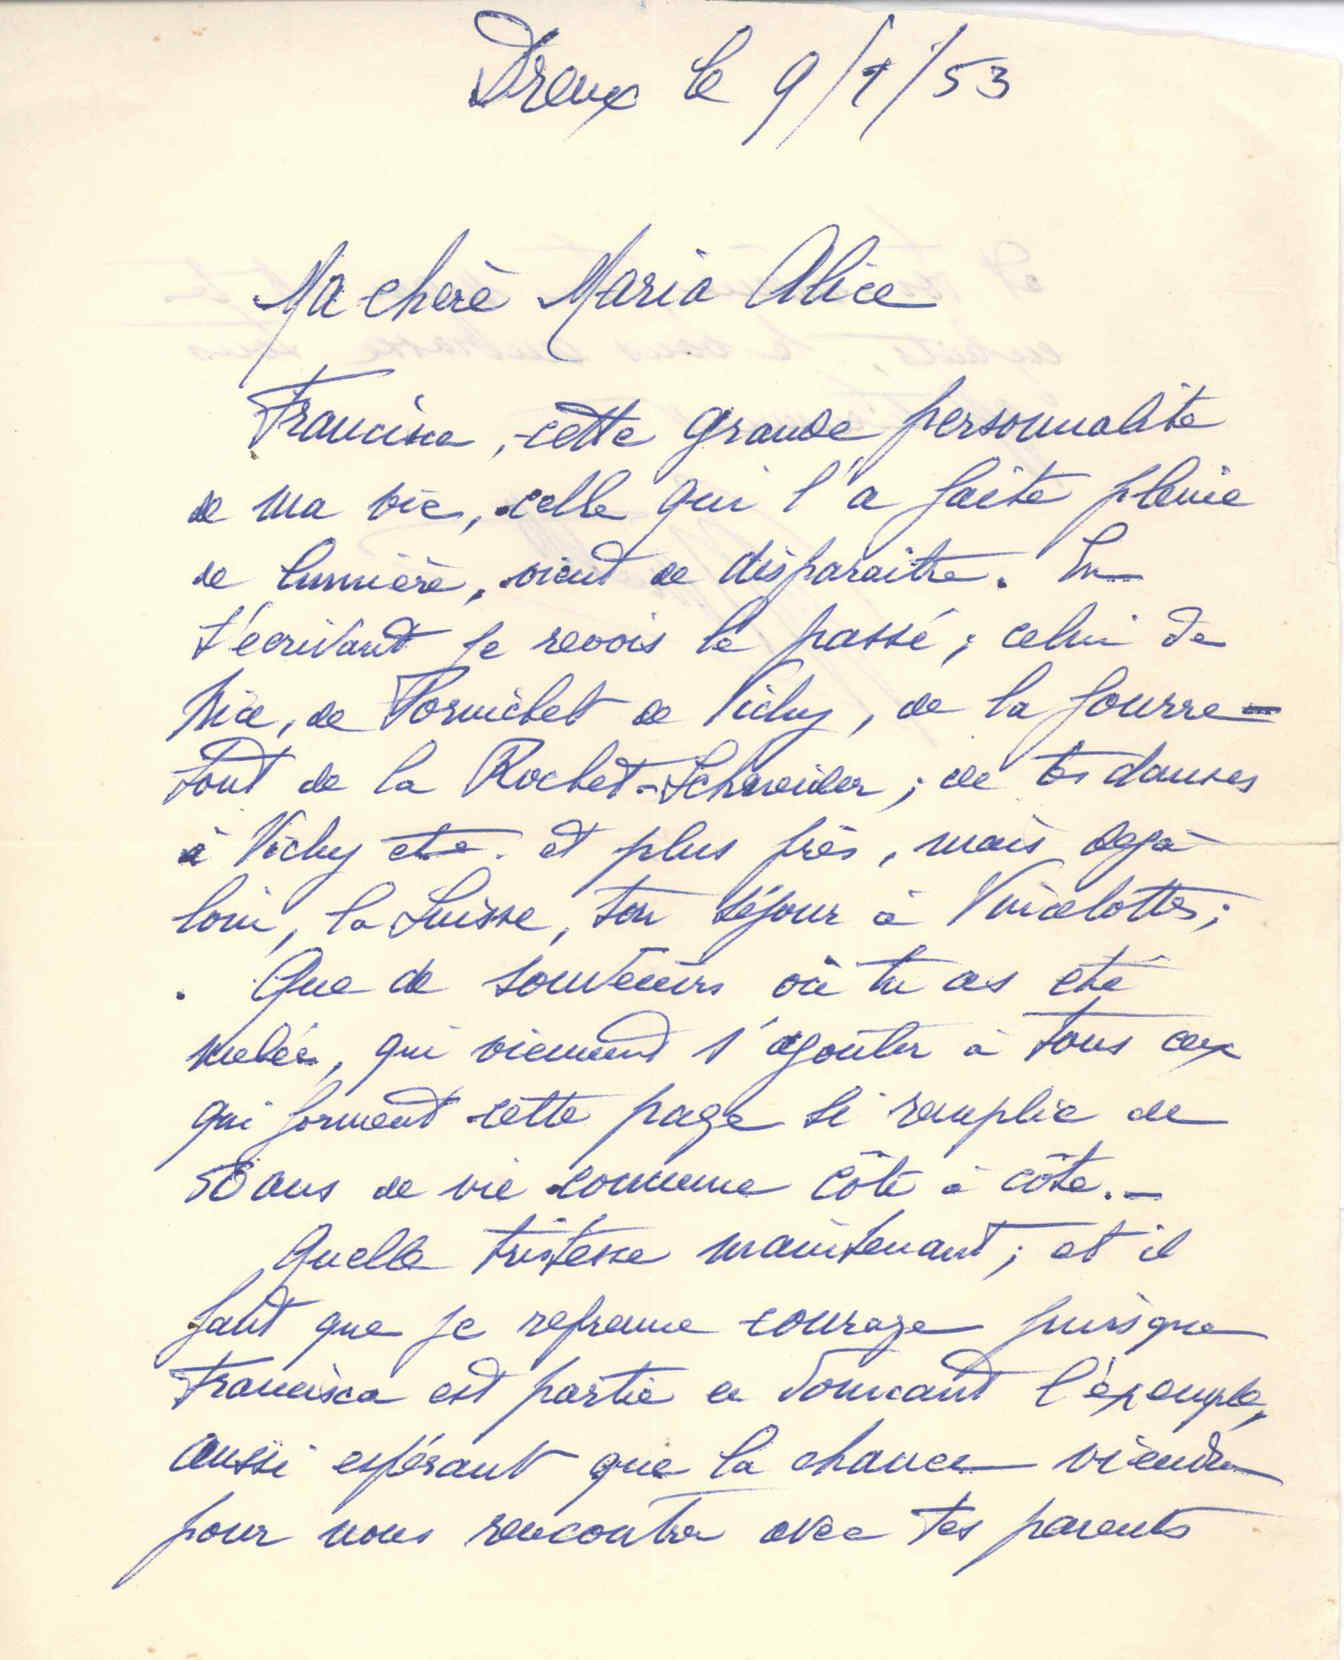 Dreux le 9/1/53
Ma chère Maria Alice
Francisca, cette grande personnalite
de ma vie, celle qui l'a faite pleine
de lumière, vient de disparaitre. En
t'ecrivant je revois le passé; celui de
Nice, de Pornichet de Vichy, de la fourre-
tout de la Rochet-Schneider; de tes danses
à Vichy etc. et plus près, mais dejà
loin, la Suisse, ton séjour à Vincelottes;
. Que de souvenirs où tu as eté
melée, qui viennent s'ajouter à tous ceux
qui forment cette page si remplie de
50 ans de vie commune côte à côte.-
Quelle tristesse maintenant; et il
faut que je reprenne courage puisque
Francisca est partie en donnant l'éxemple,
aussi espérant que la chance viendra
pour nous rencontrer avec tes parents